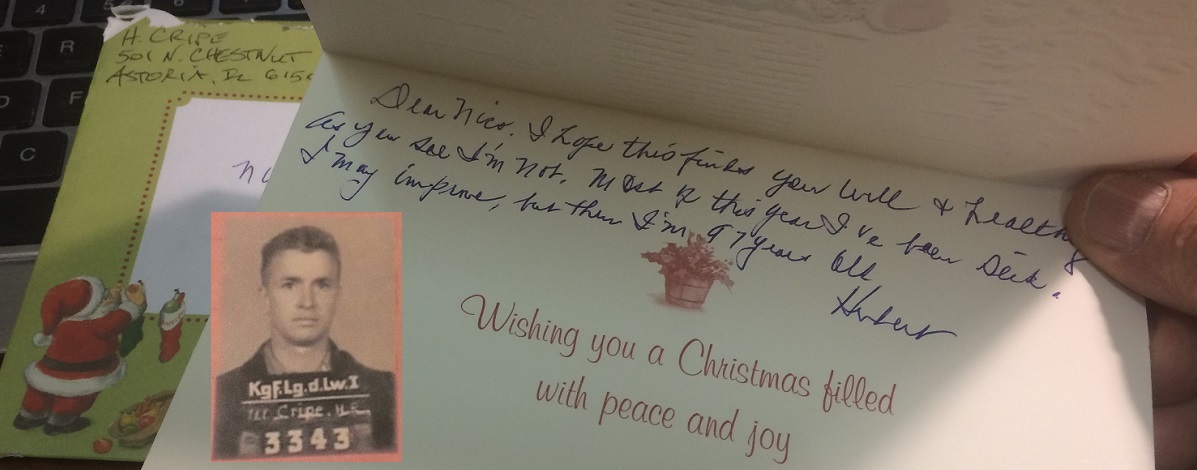 H. CRIPE
501 N. CHESTNUT
ASTORIA, IL 615
Dear Nico. I hope this finds you well & healthy
as you see I'm not. Most of this year I've been sick.
I may improve, but then I'm 97 years old
Herbert
Wishing you a Christmas filled
with peace and joy
Kgf.Lg.d.Lw.I
Cripe, H.E.
3343
4
R
F
C